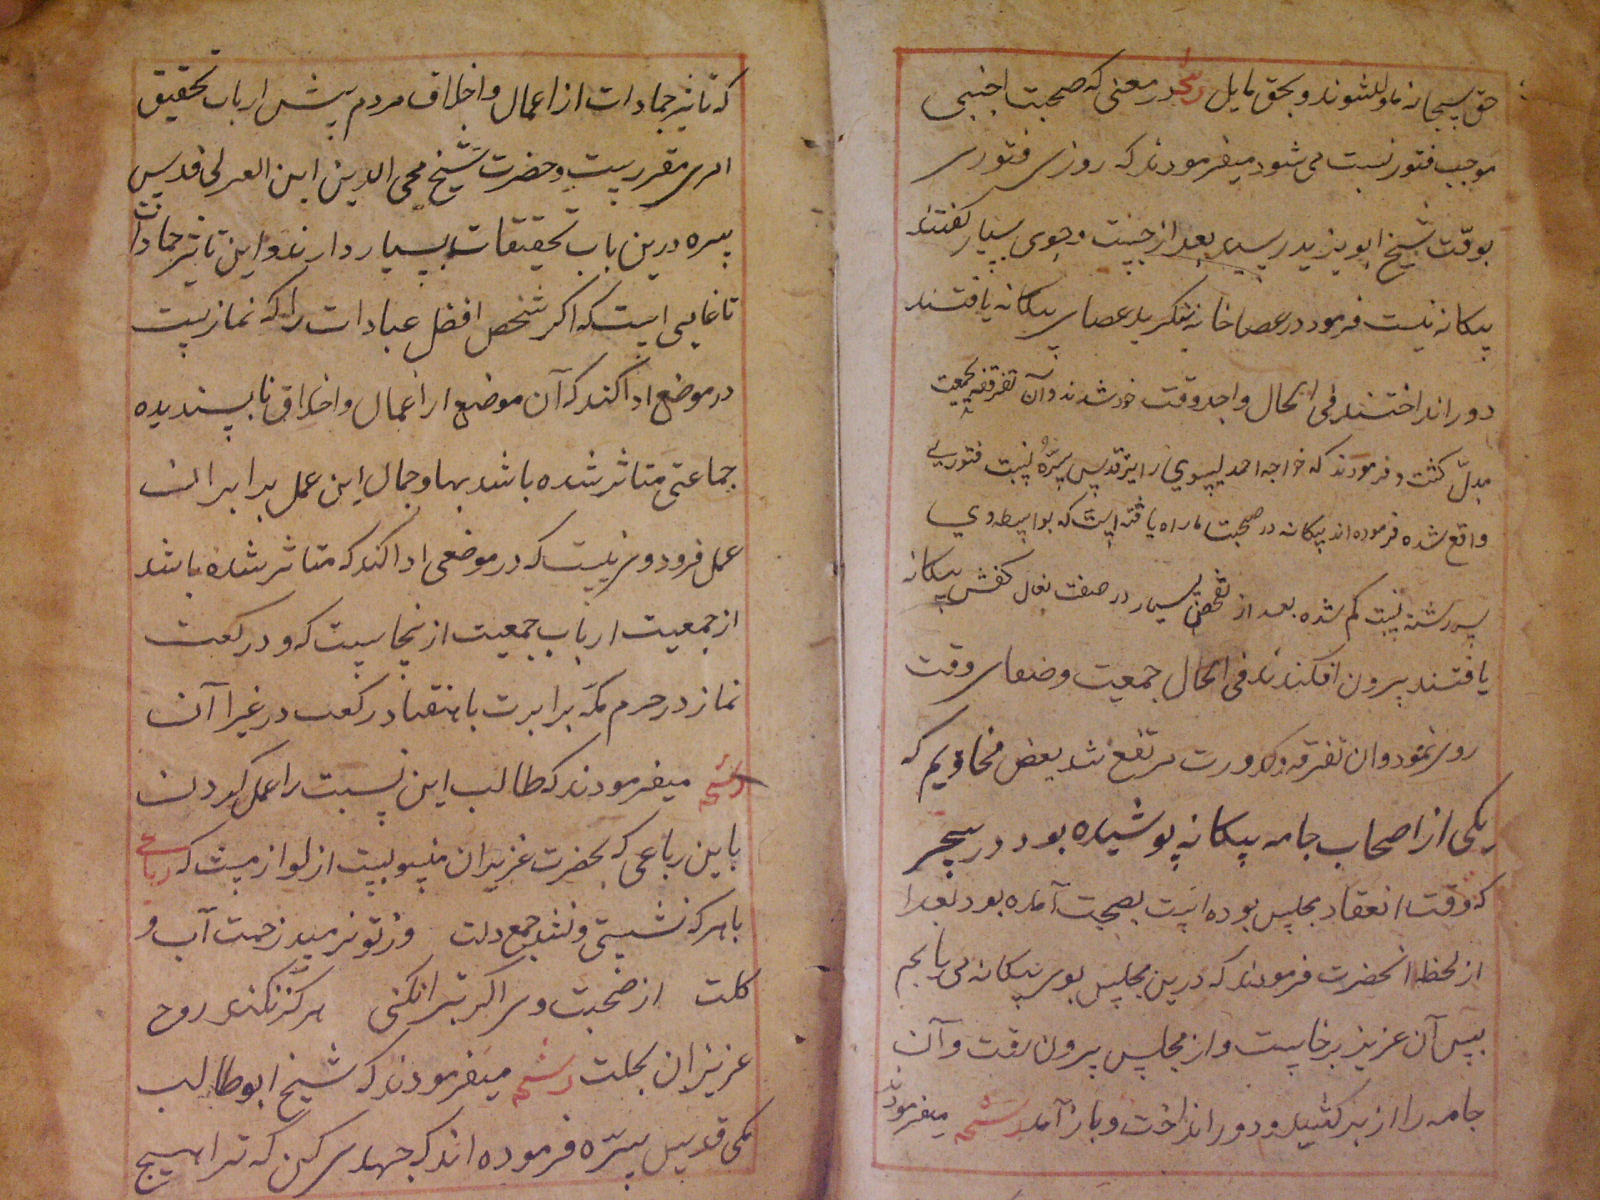 حق سبحانه ملول شوند و بحق مایل رشحه در معنی که صحبت اجنبی
موجب فتور نسبت می شود میفرمودند که روزی فتوری
بوقت شیخ ابویزید رسید بعد از جست و جوی بسیار گفتند
بیکانه نیست فرمود در عصا خانه بنگرید عصای بیکانه یافتند
دور انداختند فی الحال واجد وقت خود شدند و آن تفرقه بجمعیت
مبدل کشت و فرمودند که خواجه احمد یسوی را نیز قدس سره نسبت فتوری
واقع شده فرموده اند بیکانه در صحبت ما راه یافته است که بواسطه وی
سررشته نسبت کم شده بعد از تفحص بسیار در صف نعال کفش بیکانه
یافتند بیرون افکندند فی الحال جمعیت و صفای وقت
روی نمود و ان تفرقه و کدورت مرتفع شد بعض مخادیم که
یکی از اصحاب جامه بیکانه پوشیده بود در سحر
که وقت انعقاد مجلس بوده است بصحبت آمده بود بعد
از لحظه انحضرت فرمودند که درین مجلس بوی بیکانه می یابم
پس آن عزیز برخاست و از مجلس بیرون رفت و آن
جامه را از بر کشید و دور انداخت و باز آمد رشحه میفرمودند
که تاثیر جمادات از اعمال و اخلاق مردم پیش ارباب تحقیق
امری مقررست و حضرت شیخ محی الدین ابن العربی قدس
سره درین باب تحقیقات بسیار دارند و این تاثیر جمادات
تا غایتی است که اکر شخص افضل عبادات را که نمازست
در موضع ادا کند که آن موضع از اعمال و اخلاق ناپسندیده
جماعتی متاثر شده باشد بها و جمال این عمل برابر ان
عمل فرودین نیست که در موضعی ادا کند که متاثر شده باشد
از جمعیت ارباب جمعیت ازینجاست که دو رکعت
نماز در حرم مکه برابرست با هفتاد رکعت در غیر آن
رشحه میفرمودند که طالب این نسبت را عمل کردن
باین رباعی که بحضرت عزیزان منسوبست از لوازمست که رباعی
با هرکه نشستی و نشد جمع دلت وز تو نرمید زحمت آب و
کلت از صحبت وی اکر تبرا نکنی هرکز نکند روح
عزیزان بحلت رشحه میفرمودند که شیخ ابوطالب
مکی قدس سره فرموده اند که جهد کن که ترا هیچ